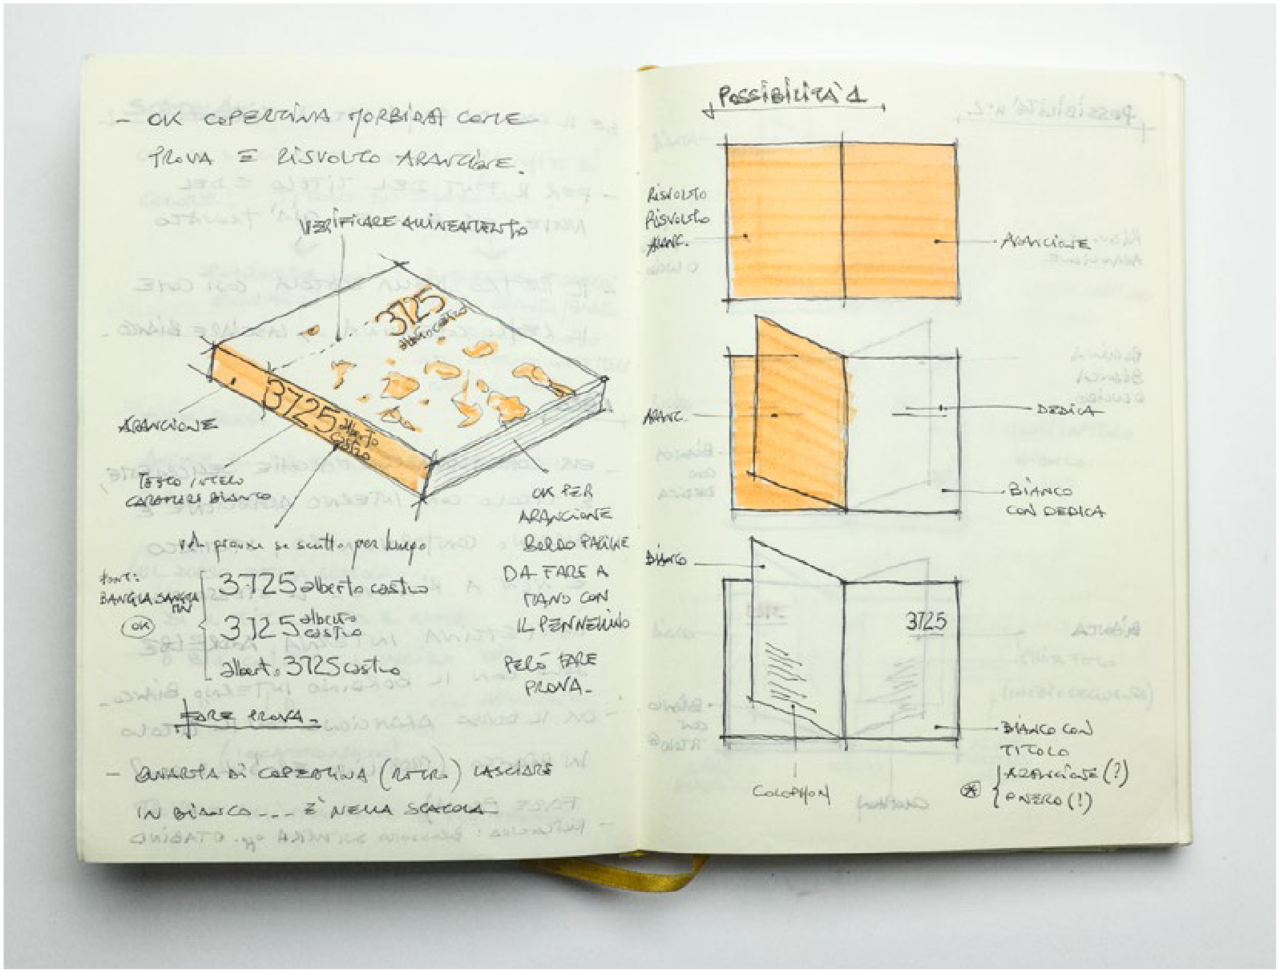 - OK COPERTINA MORBIDA COME
PROVA E RISVOLTO ARANCIONE.
VERIFICARE ALLINEAMENTO
3725
alberto castro
3725 alberto
castro
ARANCIONE
TESTO INTERO
CARATTERI BIANCO
OK PER
ARANCIONE
BORDO PAGINE
DA FARE A
MANO CON
IL PENNELLINO
PERÒ FARE
PROVA.
prova se scritto per lungo
FONT:
BANGLA SANGAM
MN
OK
3725 alberto castro
3725 alberto
castro
alberto 3725 castro
FARE PROVA.
- QUARTA DI COPERTINA (RETRO) LASCIARE
IN BIANCO... E NELLA SCATOLA
POSSIBILITÀ 1
RISVOLTO
RISVOLTO
ARANC.
ARANCIONE
ARANC.
DEDICA
BIANCO
CON DEDICA
BIANCO
3725
COLOPHON
BIANCO CON
TITOLO
ARANCIONE (?)
O NERO (!)